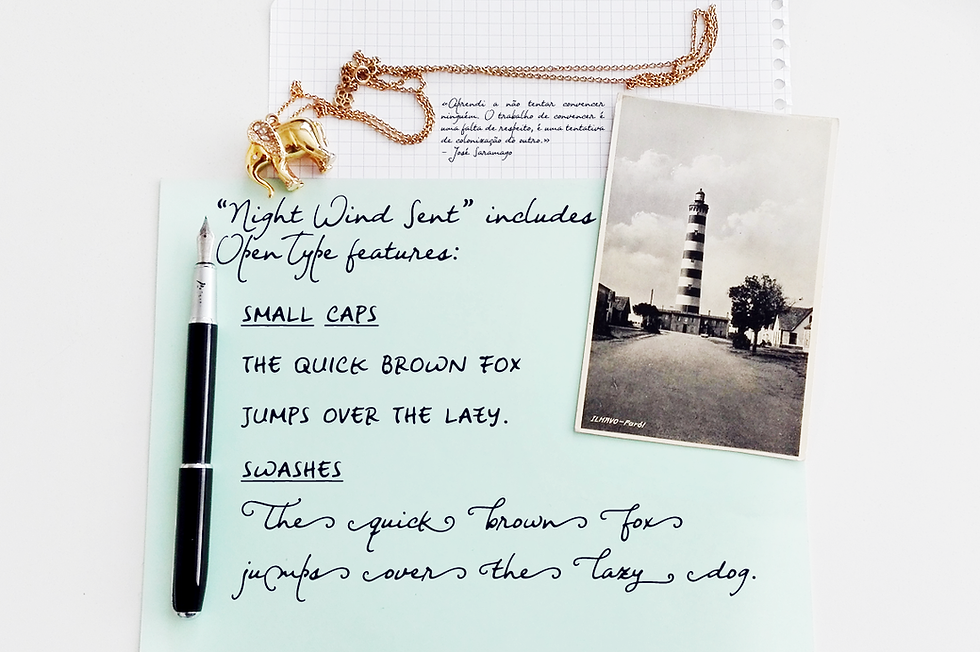 «Aprendi a não tentar convencer
ninguém. O trabalho de convencer é
uma falta de respeito, é uma tentativa
de colonização do outro.»
- José Saramago
“Night Wind Sent” includes
OpenType features:
SMALL CAPS
THE QUICK BROWN FOX
JUMPS OVER THE LAZY.
SWASHES
The quick brown fox
jumps over the lazy dog.
ILHAVO-Farol